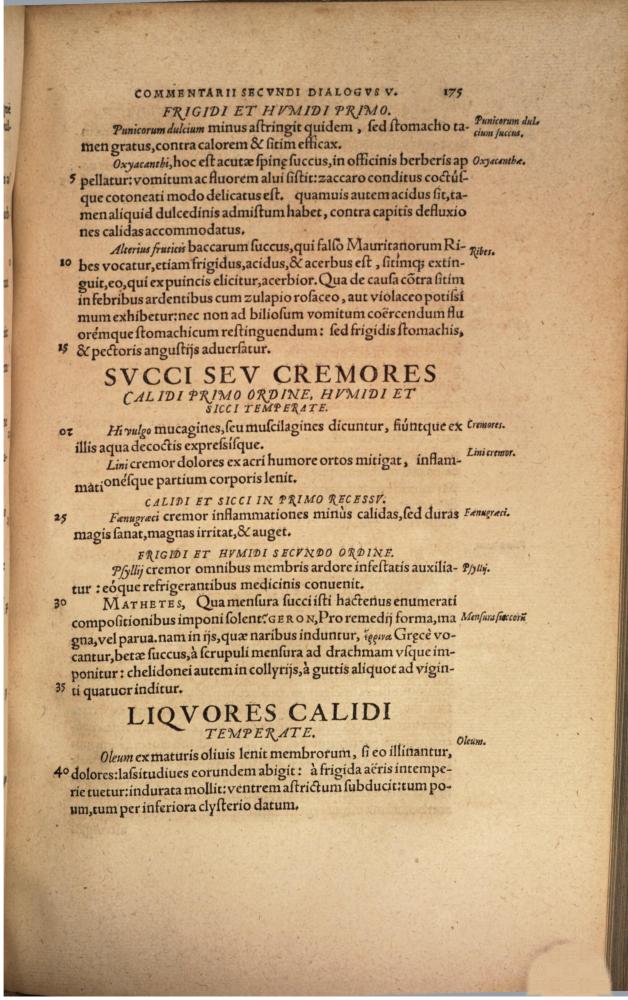 COMMENTARII SECVNDI DIALOGVS V. 175
FRIGIDI ET HVMIDI PRIMO.
Punicorum dulcium minus aſtringit quidem, ſed ſtomacho ta- Punicorum dul-
cium ſuccus.
men gratus, contra calorem & ſitim efficax.
Oxyacanthi, hoc eſt acutæ ſpinę ſuccus, in officinis berberis ap Oxyacanthæ.
5 pellatur: vomitum ac fluorem alui ſiſtit: zaccaro conditus coctúſ-
que cotoneati modo delicatus eſt. quamuis autem acidus ſit, ta-
men aliquid dulcedinis admiſtum habet, contra capitis defluxio
nes calidas accommodatus.
Alterius fruticis baccarum ſuccus, qui falſo Mauritanorum Ri- Ribes.
10 bes vocatur, etiam frigidus, acidus, & acerbus eſt, ſitimq; extin-
guit, eo, qui ex puincis elicitur, acerbior. Qua de cauſa cõtra ſitim
in febribus ardentibus cum zulapio roſaceo, aut violaceo potiſſi
mum exhibetur: nec non ad bilioſum vomitum coërcendum flu
orémque ſtomachicum reſtinguendum: ſed frigidis ſtomachis,
15 & pectoris anguſtijs aduerſatur.
SVCCI SEV CREMORES
CALIDI PRIMO ORDINE, HVMIDI ET
SICCI TEMPERATE.
02 Hi vulgo mucagines, ſeu muſcilagines dicuntur, fiúntque ex Cremores.
illis aqua decoctis expreſsíſque.
Lini cremor dolores ex acri humore ortos mitigat, inflam- Lini cremor.
mationéſque partium corporis lenit.
CALIDI ET SICCI IN PRIMO RECESSV.
25 Fænugræci cremor inflammationes minùs calidas, ſed duras Fænugræci.
magis ſanat, magnas irritat, & auget.
FRIGIDI ET HVMIDI SECVNDO ORDINE.
Pſyllij cremor omnibus membris ardore infeſtatis auxilia- Pſyllij.
tur: eóque refrigerantibus medicinis conuenit.
30 MATHETES, Qua menſura ſucci iſti hactenus enumerati
compoſitionibus imponi ſolent? GERON, Pro remedij forma, ma Menſura ſuccorũ
gna, vel parua. nam in ijs, quæ naribus induntur, ἔρρινα Gręcè vo-
cantur, betæ ſuccus, à ſcrupuli menſura ad drachmam vſque im-
ponitur: chelidonei autem in collyrijs, à guttis aliquot ad vigin-
35 ti quatuor inditur.
LIQVORES CALIDI
TEMPERATE.
Oleum ex maturis oliuis lenit membrorum, ſi eo illinantur, Oleum.
40 dolores: laſsitudiues eorundem abigit: à frigida aëris intempe-
rie tuetur: indurata mollit: ventrem aſtrictum ſubducit: tum po-
um, tum per inferiora clyſterio datum.